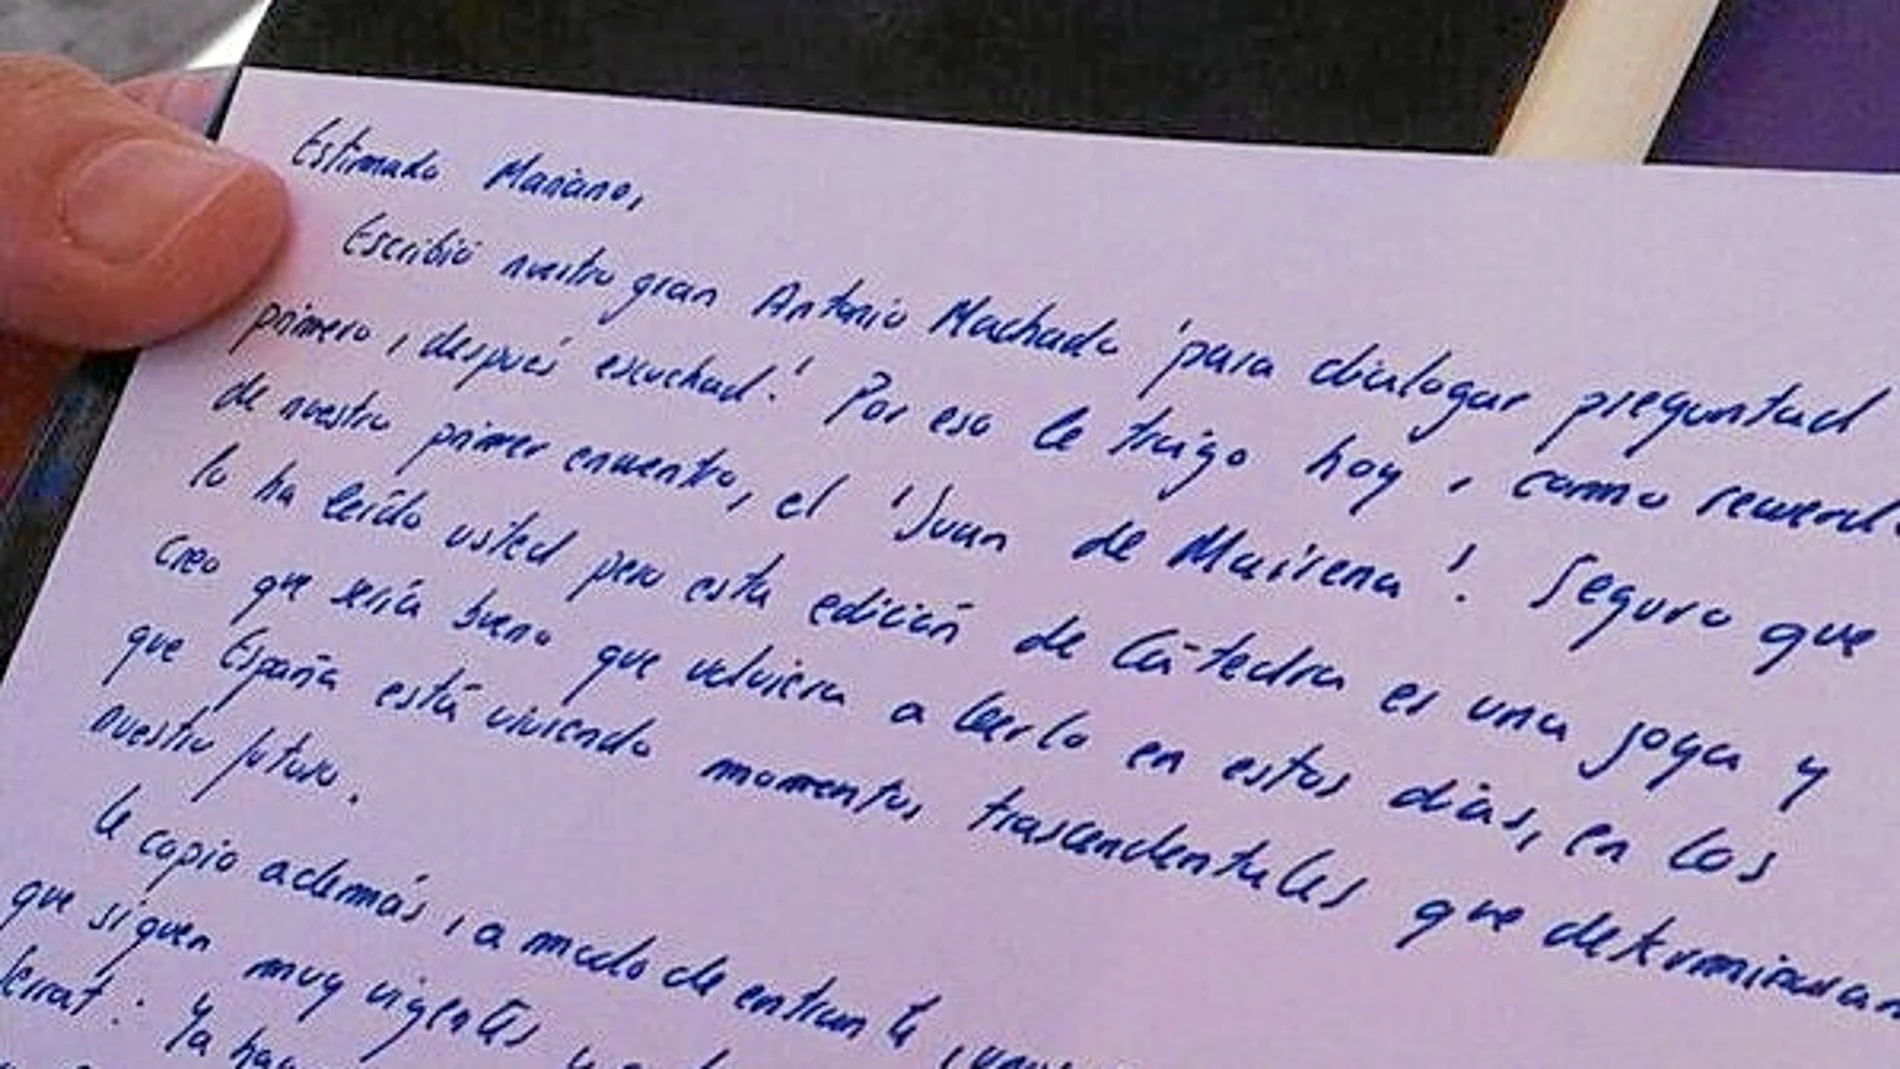 Estimado Mariano,
Escribió nuestro gran Antonio Machado 'para dialogar preguntad
primero, después escuchad.' Por eso le traigo hoy, como
de nuestro primer encuentro, el 'Juan de Mairena'. Seguro que
lo ha leído usted pero esta edición de Cátedra es una joya y
creo que sería bueno que volviera a leerlo en estos días, en los
que España está viviendo momentos trascendentales que determinaran
nuestro futuro.
Le copio además, a modo de entrante,
que siguen muy vigentes y
Serrat: Ya hay